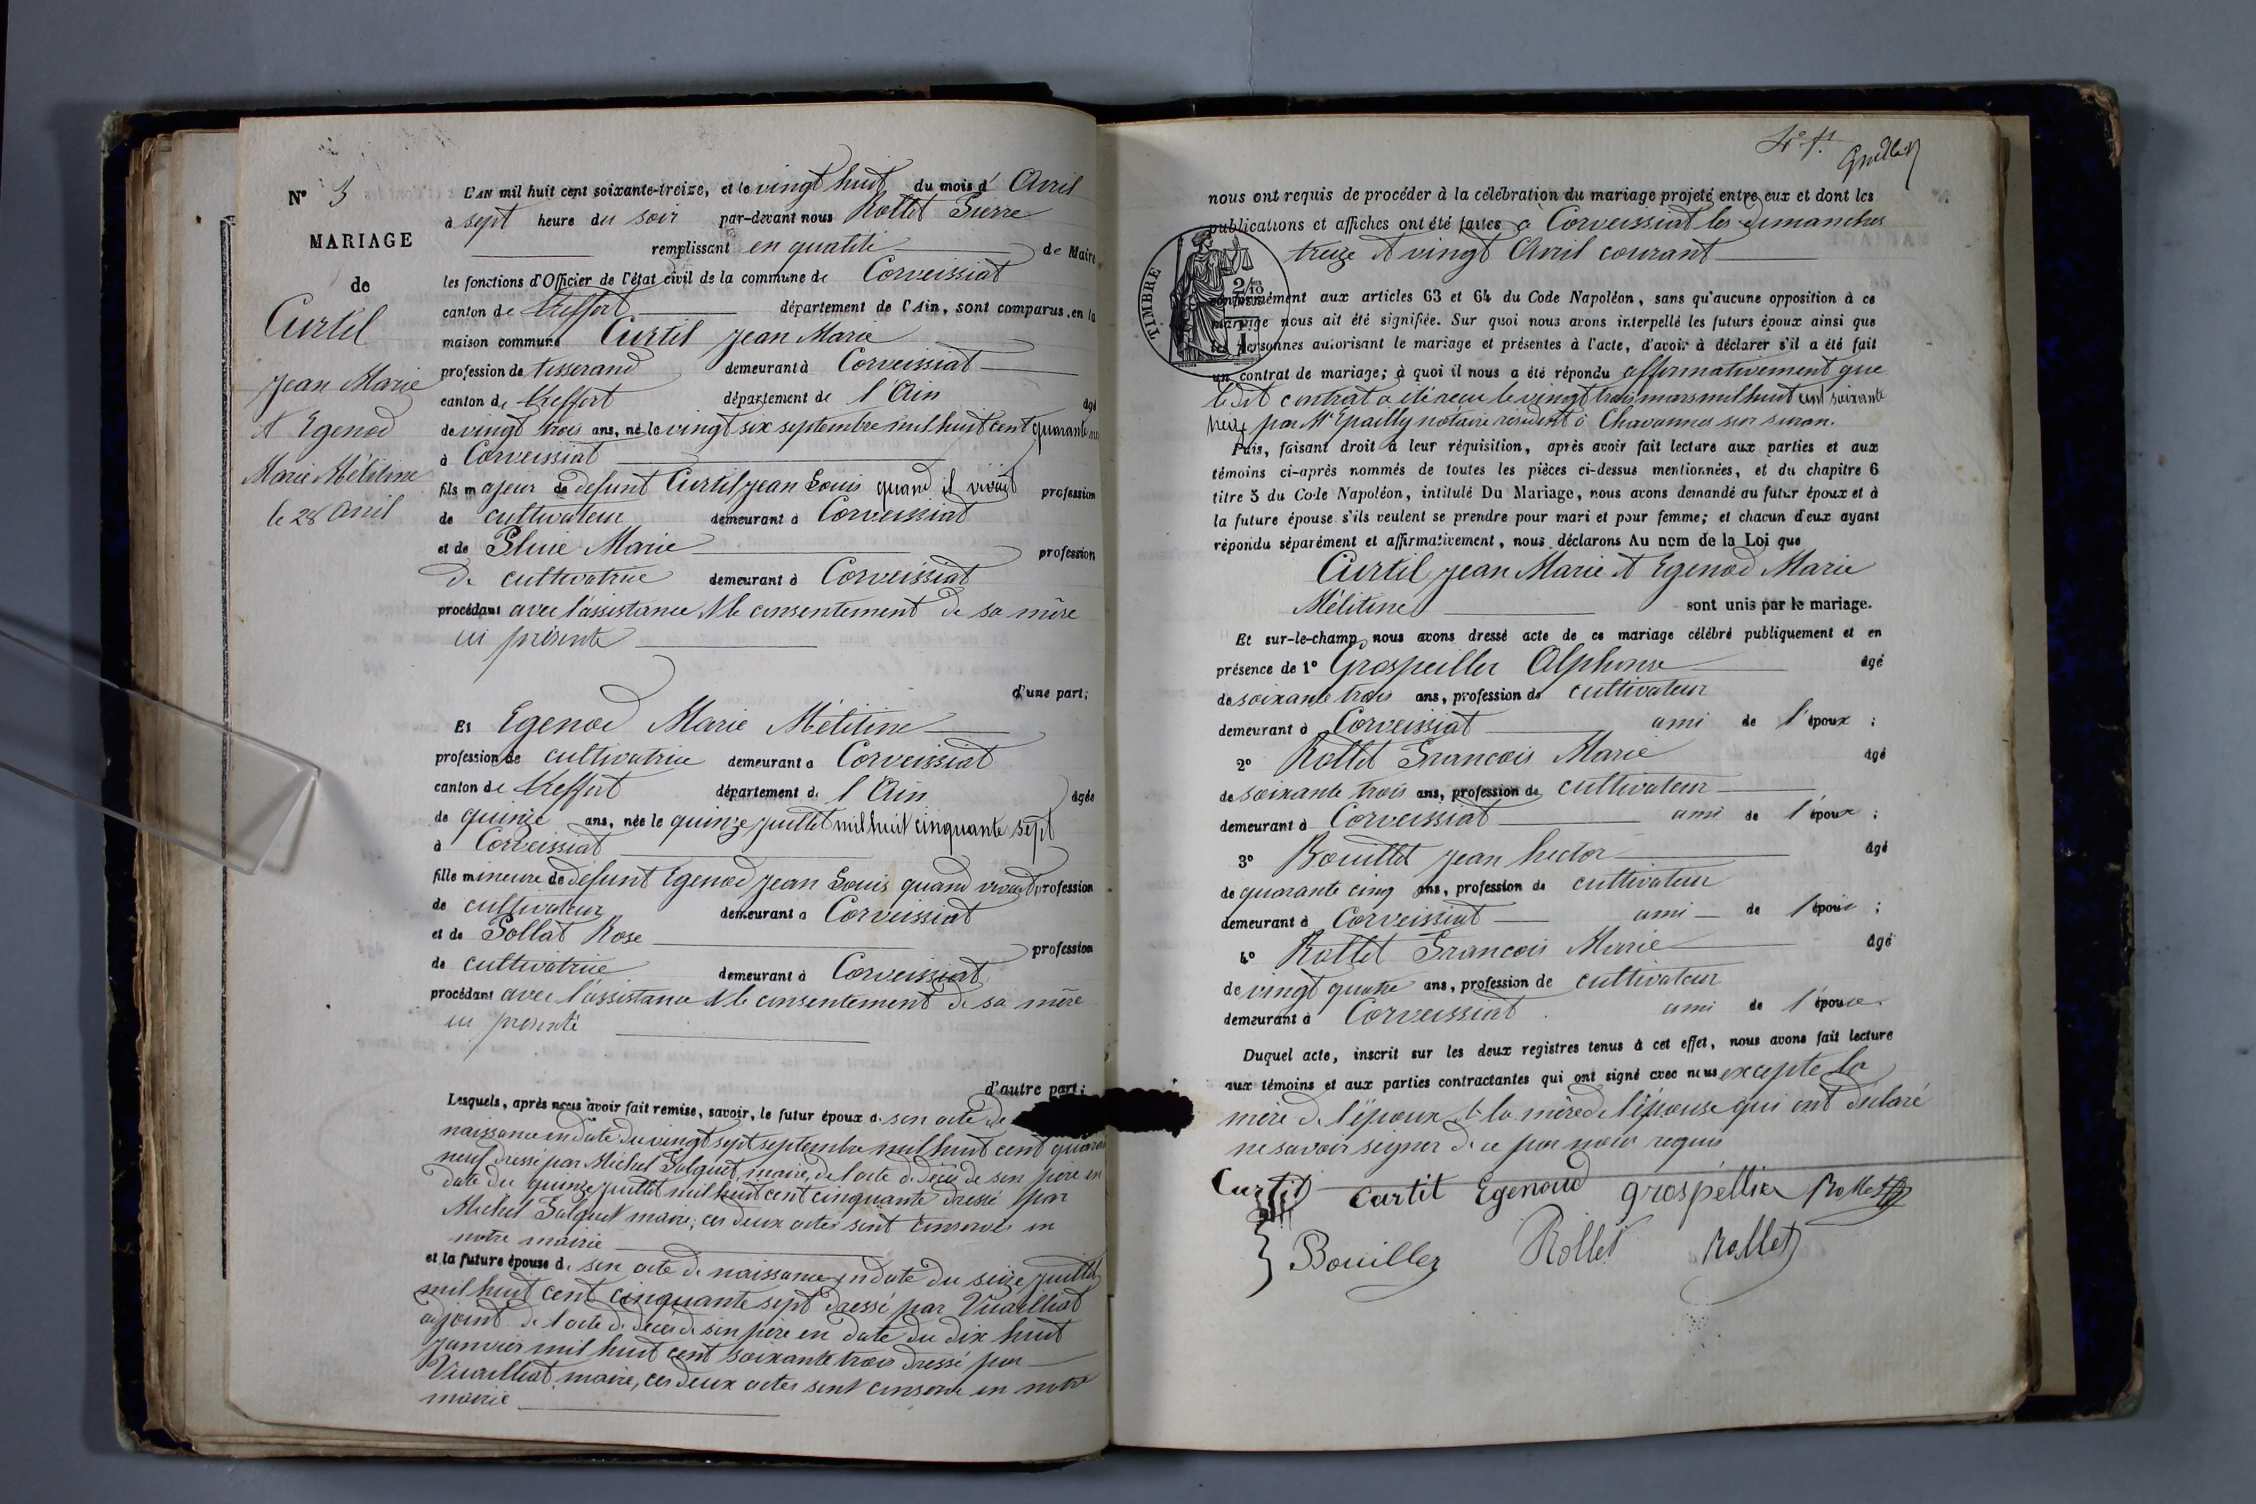 N° 3
MARIAGE
de
Curtil
Jean Marie
et Egenod
Marie Mélitine
le 28 avril
L'AN mil huit cent soixante-treize, et le vingt huit du mois d' Avril
à sept heure du soir par-devant nous Rollet Pierre
remplissant en qualité de Maire
les fonctions d'Officier de l'état civil de la commune de Corveissiat
canton de treffort département de l'Ain, sont comparus, en la
maison commune Curtil Jean Marie
profession de tisserand demeurant à Corveissiat
canton de treffort département de l'Ain âgé
de vingt trois ans, né le vingt six septembre mil huit cent quarante neuf
à Corveissiat
fils majeur de defunt Curtil Jean Louis quand il vivait profession
de cultivateur demeurant à Corveissiat
et de Marie profession
de cultivatrice demeurant à Corveissiat
procédant avec l'assistance et le consentement de sa mère
ici présente
d'une part;
Et Egenod Marie Mélitine
profession de cultivatrice demeurant à Corveissiat
canton de treffort département de l'Ain âgée
de quinze ans, née le quinze juillet mil huit cinquante sept
à Corveissiat
fille mineure de defunt Egenod Jean Louis quand vivait profession
de cultivateur demeurant à Corveissiat
et de Pollat Rose profession
de cultivatrice demeurant à Corveissiat
procédant avec l'assistance et le consentement de sa mère
ici présente
d'autre part;
Lesquels, après nous avoir fait remise, savoir, le futur époux de son acte de
naissance en date du vingt sept septembre mil huit cent quarante
neuf dressé par Michel maire, de l'acte de décès de son père en
date du quinze juillet mil huit cent cinquante dressé par
Michel maire; ces deux actes sont conservés en
notre mairie
et la future épouse de son acte de naissance en date du seize juillet
mil huit cent cinquante sept dressé par Vuailliat
adjoint de l'acte de décès de son père en date du dix huit
janvier mil huit cent soixante trois dressé par
Vuailliat maire, ces deux actes sont conservé en notre
mairie
nous ont requis de procéder à la célébration du mariage projeté entre eux et dont les
publications et affiches ont été faites à Corveissiat les dimanches
treize et vingt Avril courant
TIMBRE
conformément aux articles 63 et 64 du Code Napoléon, sans qu'aucune opposition à ce
mariage nous ait été signifiée. Sur quoi nous avons interpellé les futurs époux ainsi que
les personnes autorisant le mariage et présentes à l'acte, d'avoir à déclarer s'il a été fait
un contrat de mariage; à quoi il nous a été répondu affirmativement que
le dit contrat a été reçu le vingt trois mars mil huit cent soixante
treize par Me Epailly notaire résident à Chavannes sur suran.
Puis, faisant droit à leur réquisition, après avoir fait lecture aux parties et aux
témoins ci-après nommés de toutes les pièces ci-dessus mentionnées, et du chapitre 6
titre 5 du Code Napoléon, intitulé Du Mariage, nous avons demandé au futur époux et à
la future épouse s'ils veulent se prendre pour mari et pour femme; et chacun d'eux ayant
répondu séparément et affirmativement, nous déclarons Au nom de la Loi que
Curtil Jean Marie et Egenod Marie
Mélitine sont unis par le mariage.
Et sur-le-champ nous avons dressé acte de ce mariage célébré publiquement et en
présence de 1° Grospeiller Alphonse âgé
de soixante trois ans, profession de cultivateur
demeurant à Corveissiat ami de l'époux ;
2° Rollet François Marie âgé
de soixante trois ans, profession de cultivateur
demeurant à Corveissiat ami de l'époux ;
3° Bouillet Jean hector âgé
de quarante cinq ans, profession de cultivateur
demeurant à Corveissiat ami de l'épouse ;
4° Rollet François Marie âgé
de vingt quatre ans, profession de cultivateur
demeurant à Corveissiat ami de l'épouse
Duquel acte, inscrit sur les deux registres tenus à cet effet, nous avons fait lecture
aux témoins et aux parties contractantes qui ont signé avec nous excepte la
mère de l'époux et la mère de l'épouse qui ont déclaré
ne savoir signer de ce par nous requis
Curtil Curtit Egenoud grospéllier Rollet
Bouillez Rollet Rollet